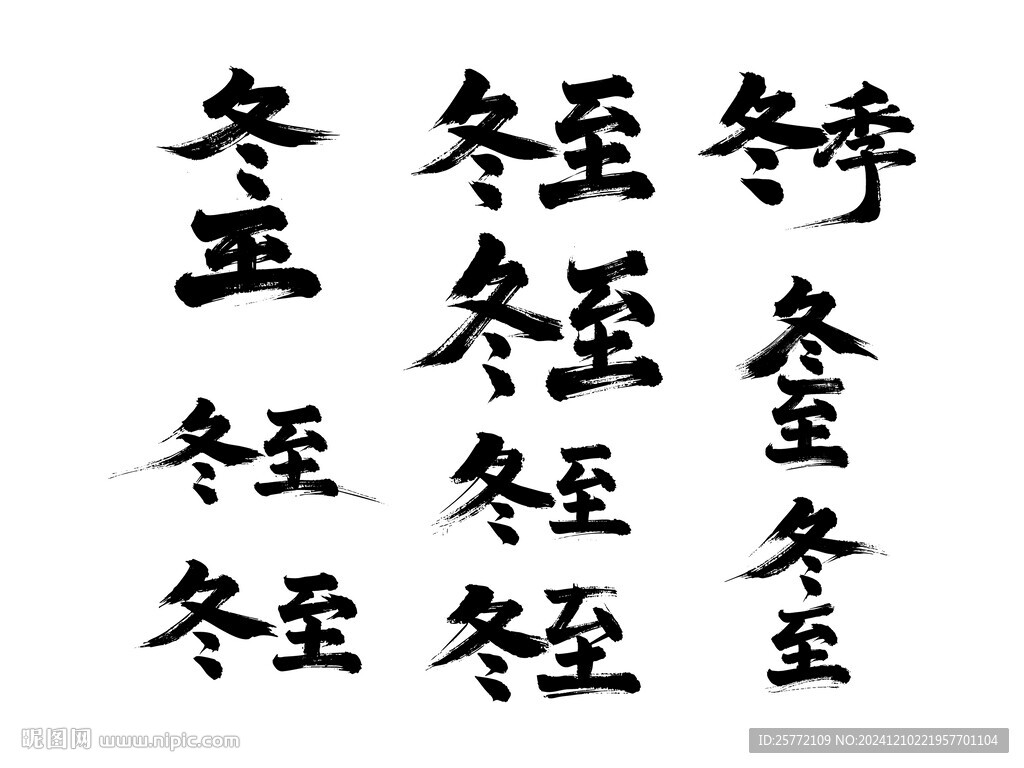 冬至
冬至
冬季
冬至
冬至
冬至
冬至
冬至
冬至
冬至
昵图网 www.nipic.com
ID:25772109 NO:20241210221957701104